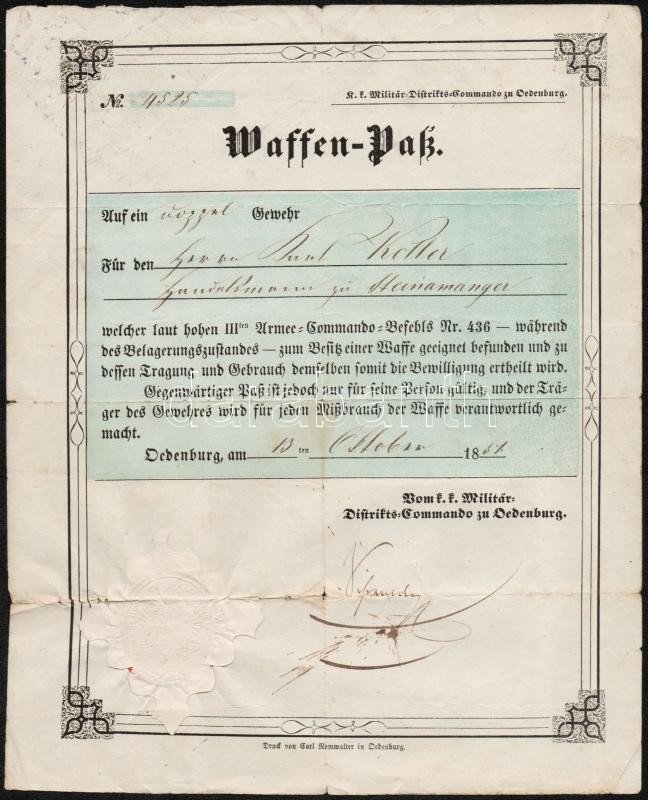 No. 4525
K. k. Militär-Distrikts-Commando zu Oedenburg.
Waffen-Paß.
Auf ein Doppel Gewehr
Für den Herrn Karl Koller
Handelsmann zu Steinamanger
welcher laut hohen IIIten Armee-Commando-Befehls Nr. 436 — während
des Belagerungszustandes — zum Besitz einer Waffe geeignet befunden und zu
dessen Tragung und Gebrauch demselben somit die Bewilligung ertheilt wird.
Gegenwärtiger Paß ist jedoch nur für seine Person gültig, und der Trä-
ger des Gewehres wird für jeden Mißbrauch der Waffe verantwortlich ge-
macht.
Oedenburg, am 13 ten October 1851
Vom k. k. Militär-
Distrikts-Commando zu Oedenburg.
Druck von Carl Romwalter in Oedenburg.
darabanth